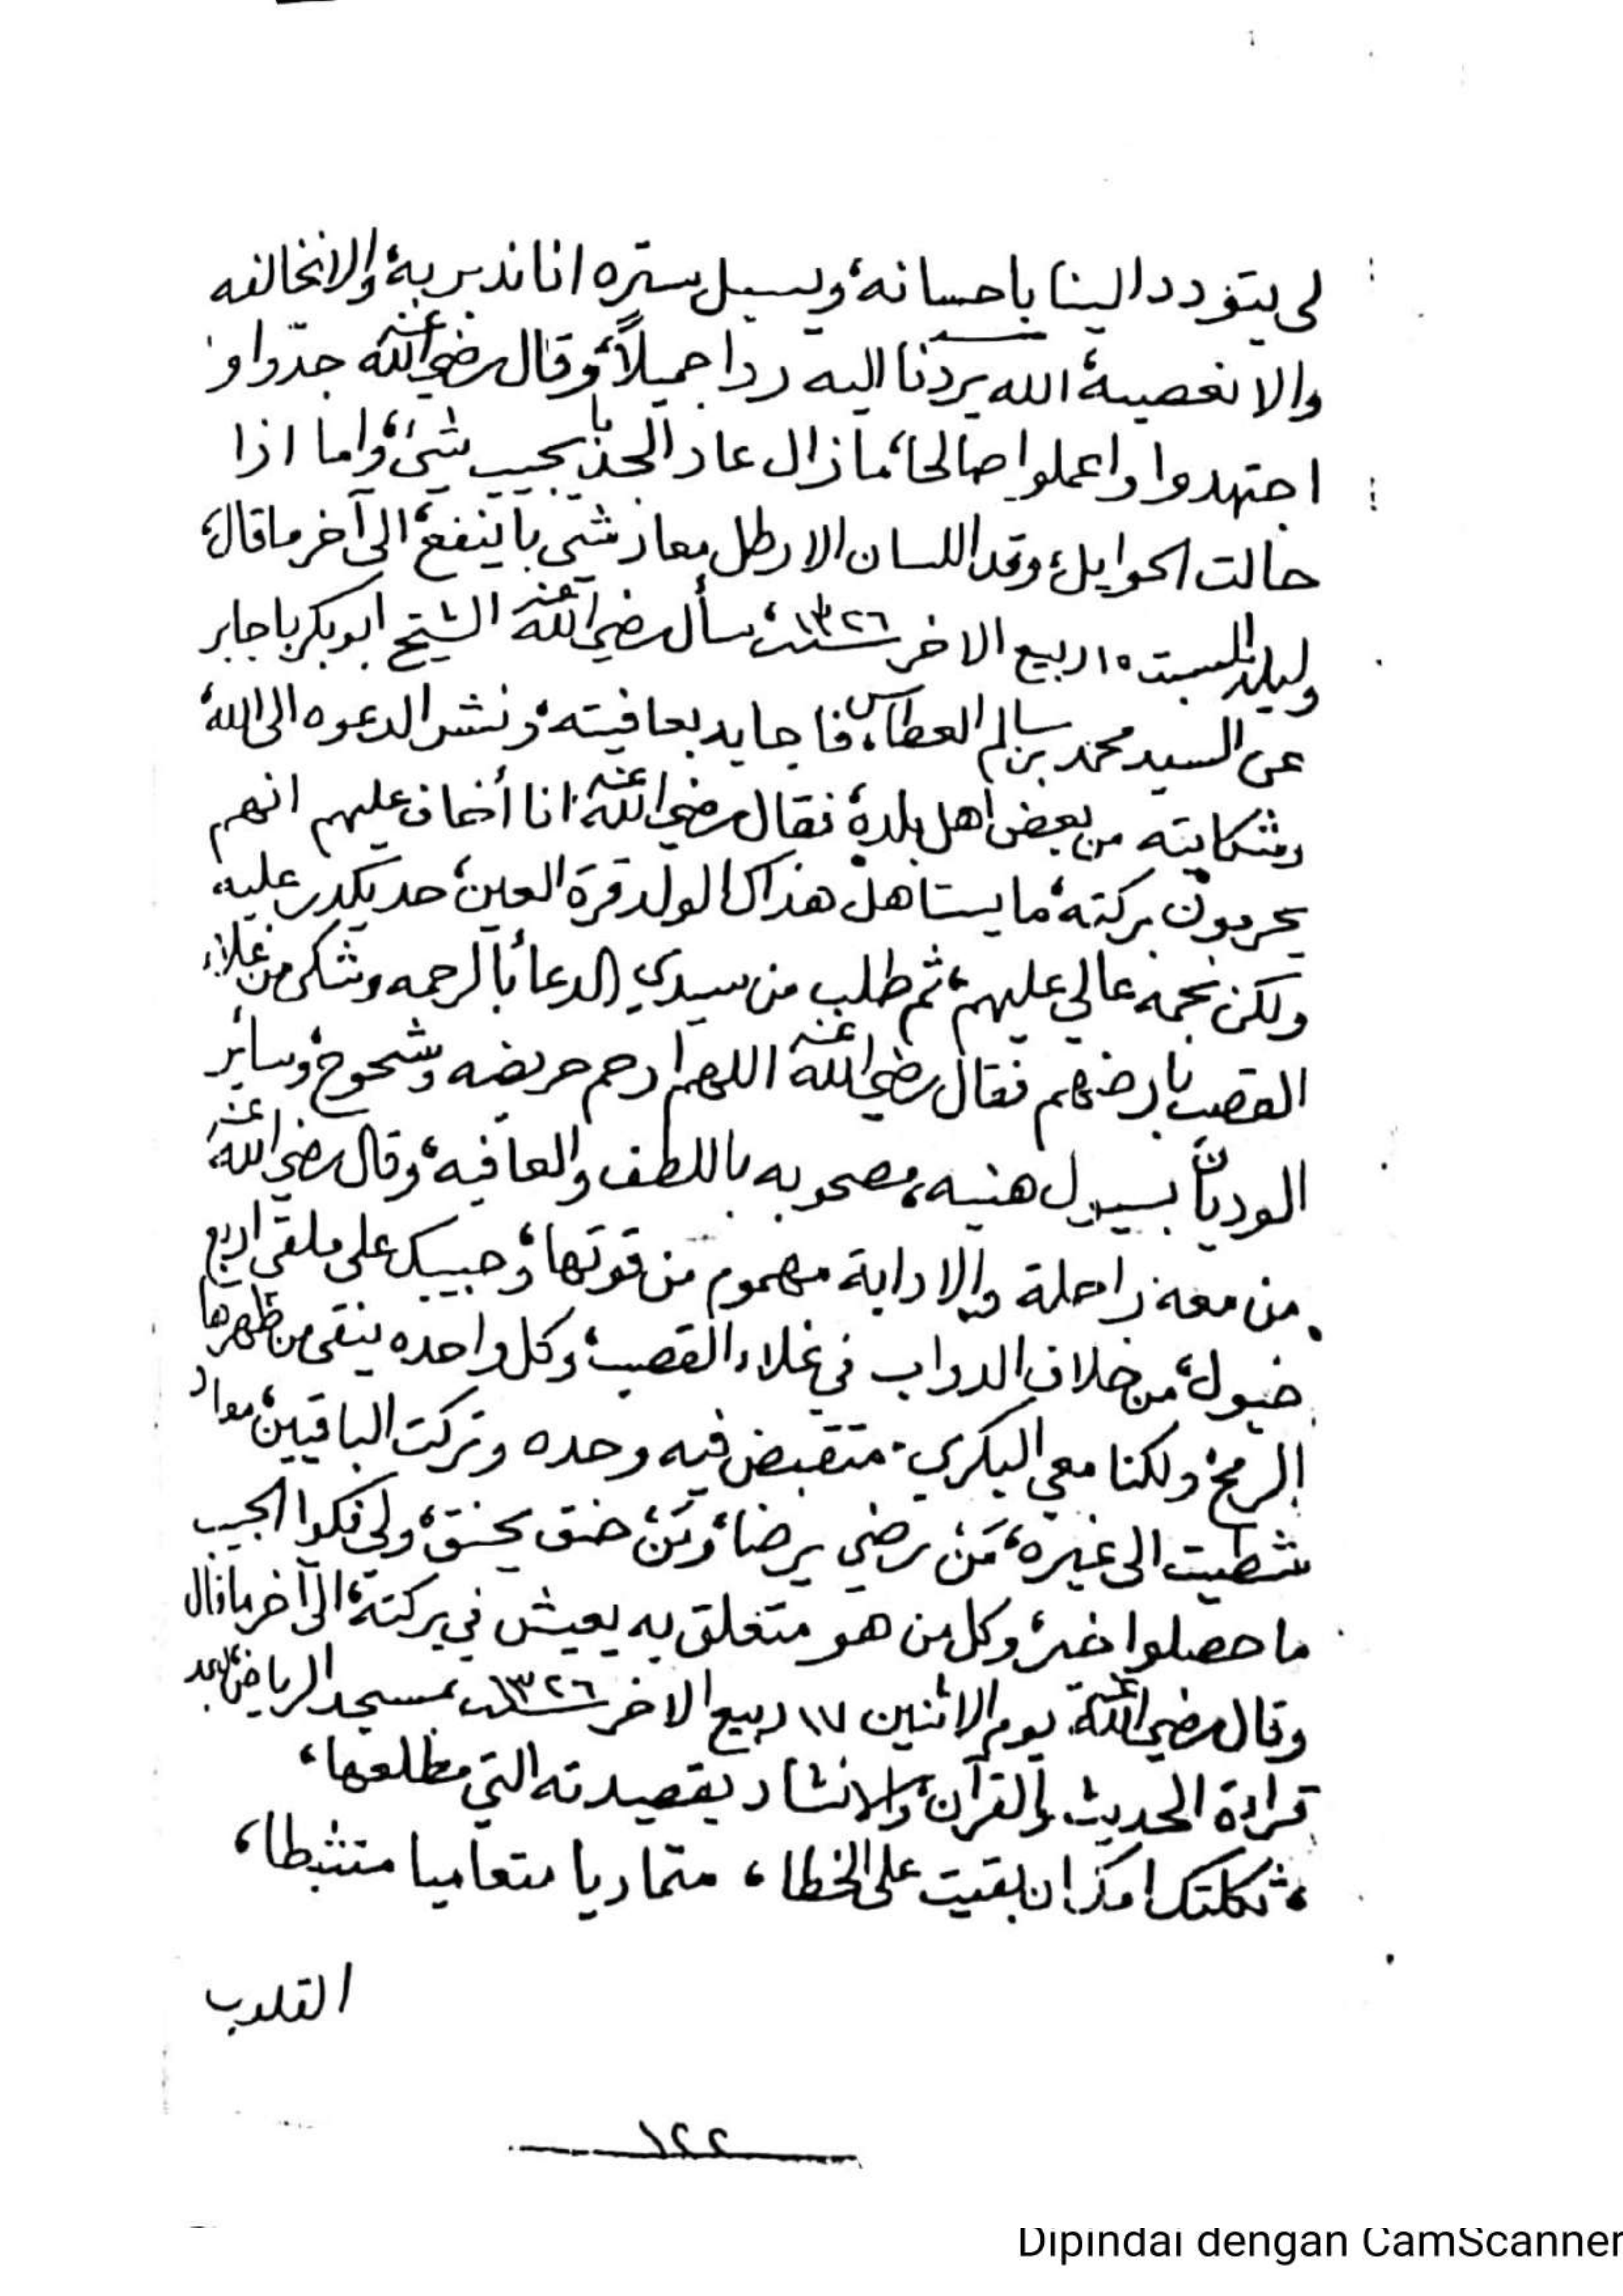 لي يتودد الينا باحسانه، ويسبل ستره انا ندبر به، والا نخالفه
والا نعصيه، الله يردنا اليه ردا جميلاً، وقال رضي الله عنه جدّوا و
اجتهدوا واعملوا صالحا، ما زال عاد الجذ با يجيب شيء، واما اذا
حالت الحوايل، وقد اللسان الا رطل معاد شي با ينفع، الى آخر ما قال،
وليلة السبت ١٥ ربيع الاخر سنة ١٣٢٦، سأل رضي الله عنه الشيخ ابوبكر باجابر
عن السيد محمد بن سالم العطاس، فاجابه بعافيته، ونشر الدعوه الى الله،
وشكايته من بعض اهل بلده، فقال رضي الله عنه، انا أخاف عليهم انهم
يحرمون بركته، ما يستاهل هذاك الولد قرة العين، حد يكدر عليه،
ولكن نجمه عالي عليهم، ثم طلب من سيدي الدعاء بالرحمه وشكى من غلاء
القصب بارضهم فقال رضي الله عنه اللهم ارحم حريضه وشحوح، وسائر
الوديان بسيول هنيه، مصحوبه باللطف والعافيه، وقال رضي الله عنه
من معه راحلة والا دابة مهموم من قوتها، وحبيبك على ملقى اربع
خيول، من خلاف الدواب في غلاء القصب، وكل واحده ينقى من ظهرها
الرمح، ولكنا معي البكري، متقبض فيه وحده وتركت الباقيين، معاد
شطيت الى غيره، مَن رضي يرضا، ومَن خنق يخنق، ولي فكوا الجيب
ما حصلوا خير، وكل من هو متعلق به يعيش في بركته، الى آخر ما قال
وقال رضي الله عنه يوم الاثنين ١٧ ربيع الاخر سنة ١٣٢٦، بمسجد الرياض، بعد
قراءة الحديث والقرآن، والانشاد بقصيدته التي مطلعها،
، ثكلتك امك ان بقيت على الخطا، متماديا متعاميا متثبطا،
القلوب
١٢٢
Dipindai dengan CamScanner